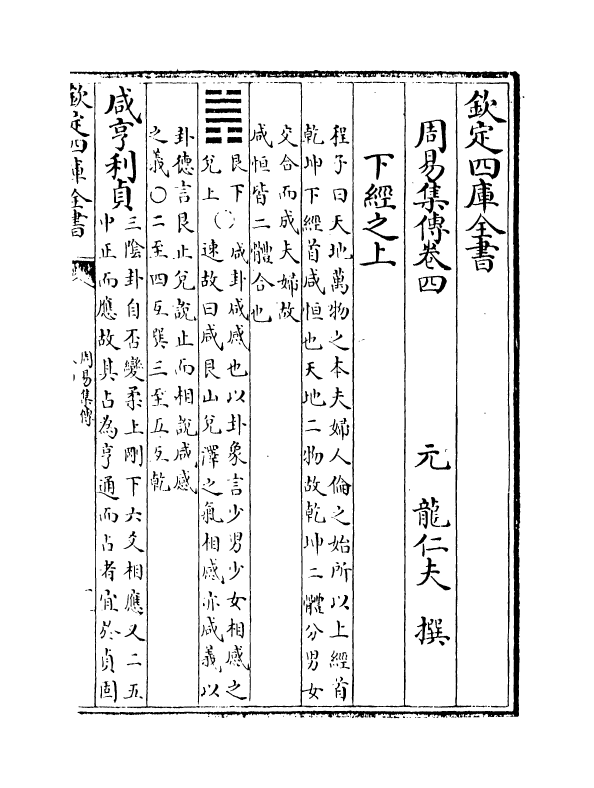 欽定四庫全書
周易集傳卷四
元 龍仁夫 撰
下經之上
程子曰天地萬物之本夫婦人倫之始所以上經首
乾坤下經首咸恒也天地二物故乾坤二體分男女
交合而成夫婦故
咸恒皆二體合也
艮下○咸卦咸感也以卦象言少男少女相感之
兌上○速故曰咸艮山兌澤之氣相感亦咸義以
卦德言艮止兌說止而相說咸感
之義○二至四互巽三至五互乾
咸亨利貞
三陰卦自否變柔上剛下六爻相應又二五
中正而應故其占為亨通而占者宜於貞固
欽定四庫全書
周易集傳